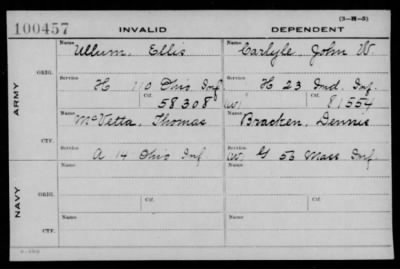 (3-M-5)
100457 INVALID DEPENDENT
ARMY
ORIG.
Name Ullum, Ellis Name Carlyle, John W
Service H 110 Ohio Inf Service H 23 Ind. Inf.
Ctf. 58308 (W) Ctf. 81554
CTF.
Name McVetta, Thomas Name Bracken, Dennis
Service A 14 Ohio Inf Service (W) G 53 Mass Inf.
NAVY
ORIG.
Name Name
Service Ctf. Service Ctf.
CTF.
Name Name
Service Service